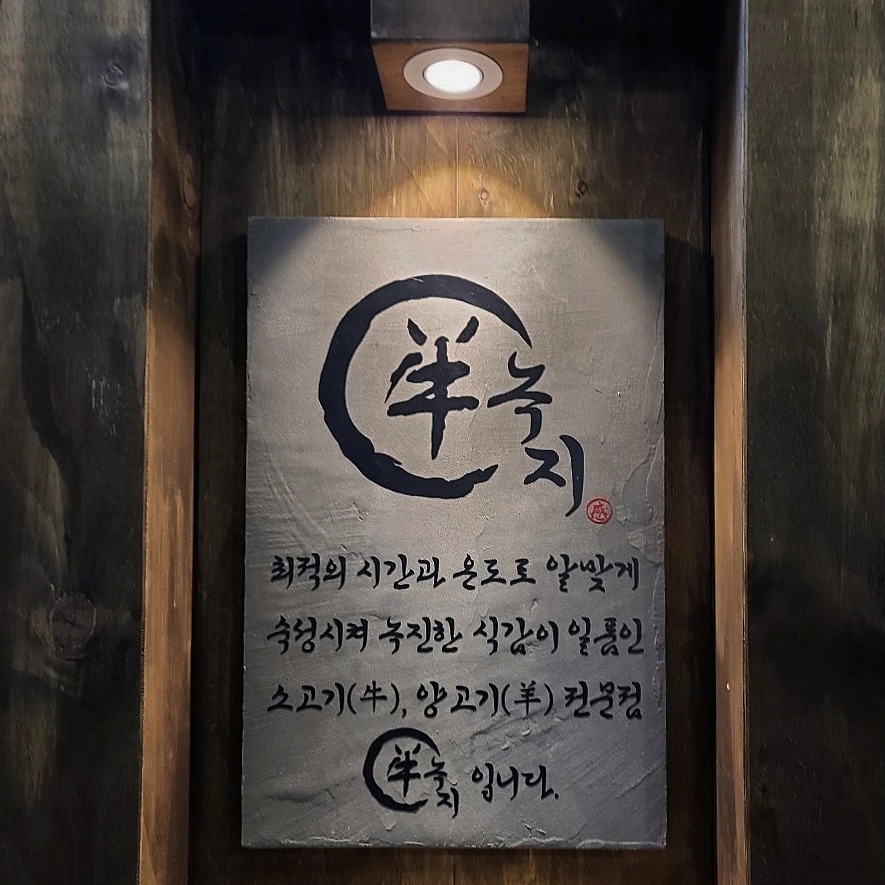 羊녹
지
感
최적의 시간과 온도로 알맞게
숙성시켜 녹진한 식감이 일품인
소고기(牛), 양고기(羊) 전문점
羊녹지 입니다.